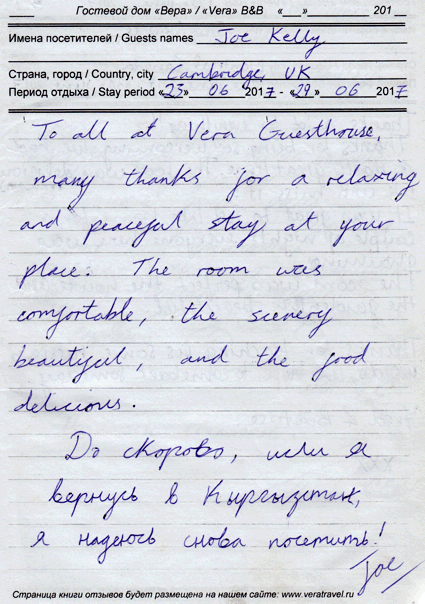 Гостевой дом «Вера» / «Vera» B&B «___» ____________ 201___
Имена посетителей / Guests names Joe Kelly
Страна, город / Country, city Cambridge, UK
Период отдыха / Stay period «23» 06 2017 - «29» 06 2017
To all at Vera Guesthouse,
many thanks for a relaxing
and peaceful stay at your
place. The room was
comfortable, the scenery
beautiful, and the food
delicious.
До скорово, если я
вернусь в Кыргызстан,
я надеюсь снова посетить!
Joe
Страница книги отзывов будет размещена на нашем сайте: www.veratravel.ru